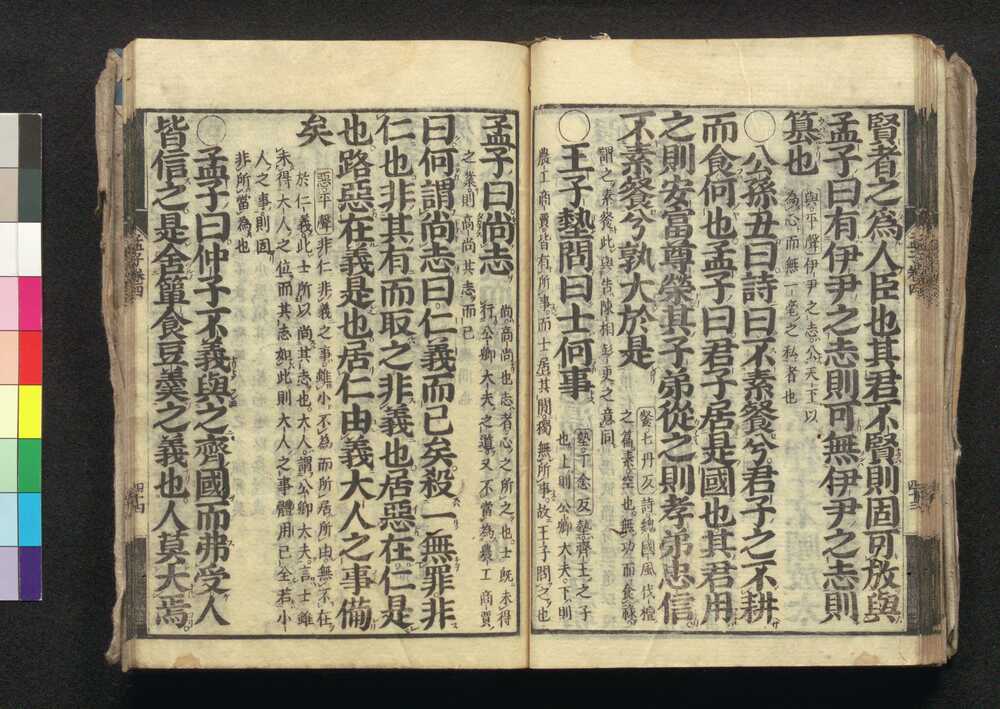 賢者之爲人臣也其君不賢則固可放與
孟子曰有伊尹之志則可無伊尹之志則
簒也
與平聲伊尹之志公天下以
爲心而無一毫之私者也
○公孫丑曰詩曰不素餐兮君子之不耕
而食何也孟子曰君子居是國也其君用
之則安富尊榮其子弟從之則孝弟忠信
不素餐兮孰大於是
餐七丹反詩魏國風伐檀
之篇素空也無功而食祿
謂之素餐此與告陳相彭更之意同
○王子墊問曰士何事
墊丁念反墊齊王之子
也上則公卿大夫下則
農工商賈皆有所事而士居其間獨無所事故王子問之也
孟子曰尚志
尚高尚也志者心之所之也士旣未得
行公卿大夫之道又不當爲農工商賈
之業則高尚其志而已
曰何謂尚志曰仁義而已矣殺一無罪非
仁也非其有而取之非義也居惡在仁是
也路惡在義是也居仁由義大人之事備
矣
惡平聲非仁非義之事雖小不爲而所居所由無不在
於仁義此士所以尚其志也大人謂公卿大夫言士雖
未得大人之位而其志如此則大人之事體用已全若小
人之事則固
非所當爲也
○孟子曰仲子不義與之齊國而弗受人
皆信之是舍簞食豆羹之義也人莫大焉
孟子卷四
四十三
孟子卷四
四十四